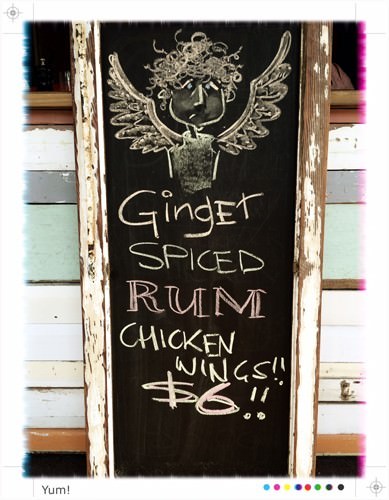 Ginger
SPICED
RUM
CHICKEN
WINGS!!
$6!!
Yum!